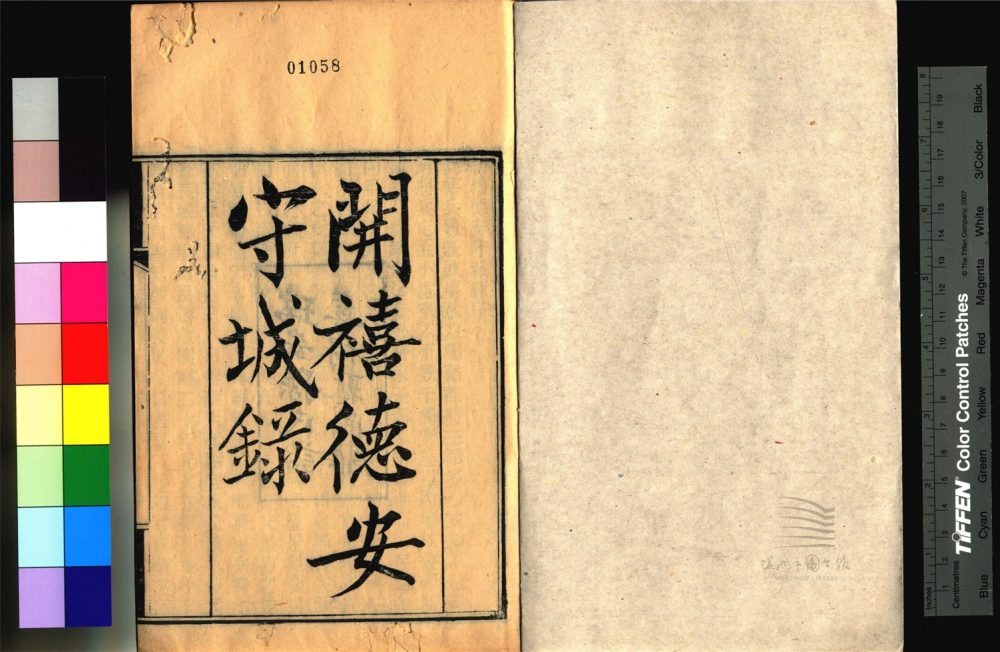 01058
開禧德安
守城錄
温州市图书馆
WENZHOU LIBRARY
8
7
6
5
4
3
2
1
19
18
17
16
15
14
13
12
11
10
9
8
7
6
5
4
3
2
1
Inches
Centimetres
TIFFEN Color Control Patches
© The Tiffen Company, 2007
Blue Cyan Green Yellow Red Magenta White 3/Color Black